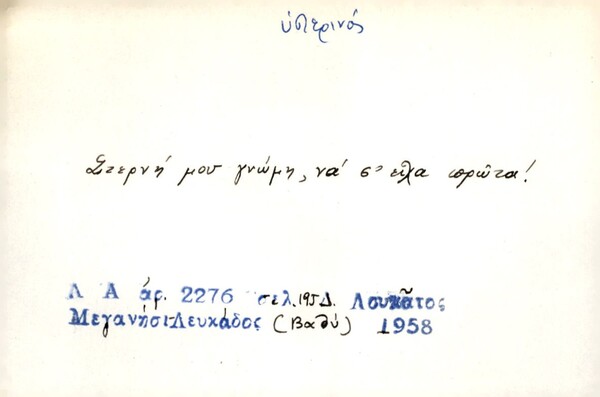 ὑστερινός
Στερνή μου γνώμη, νά σ' εἶχα πρῶτα!
Λ Α ἀρ. 2276 σελ. 195 Δ. Λουκᾶτος
Μεγανήσι-Λευκάδος (Βαθύ) 1958